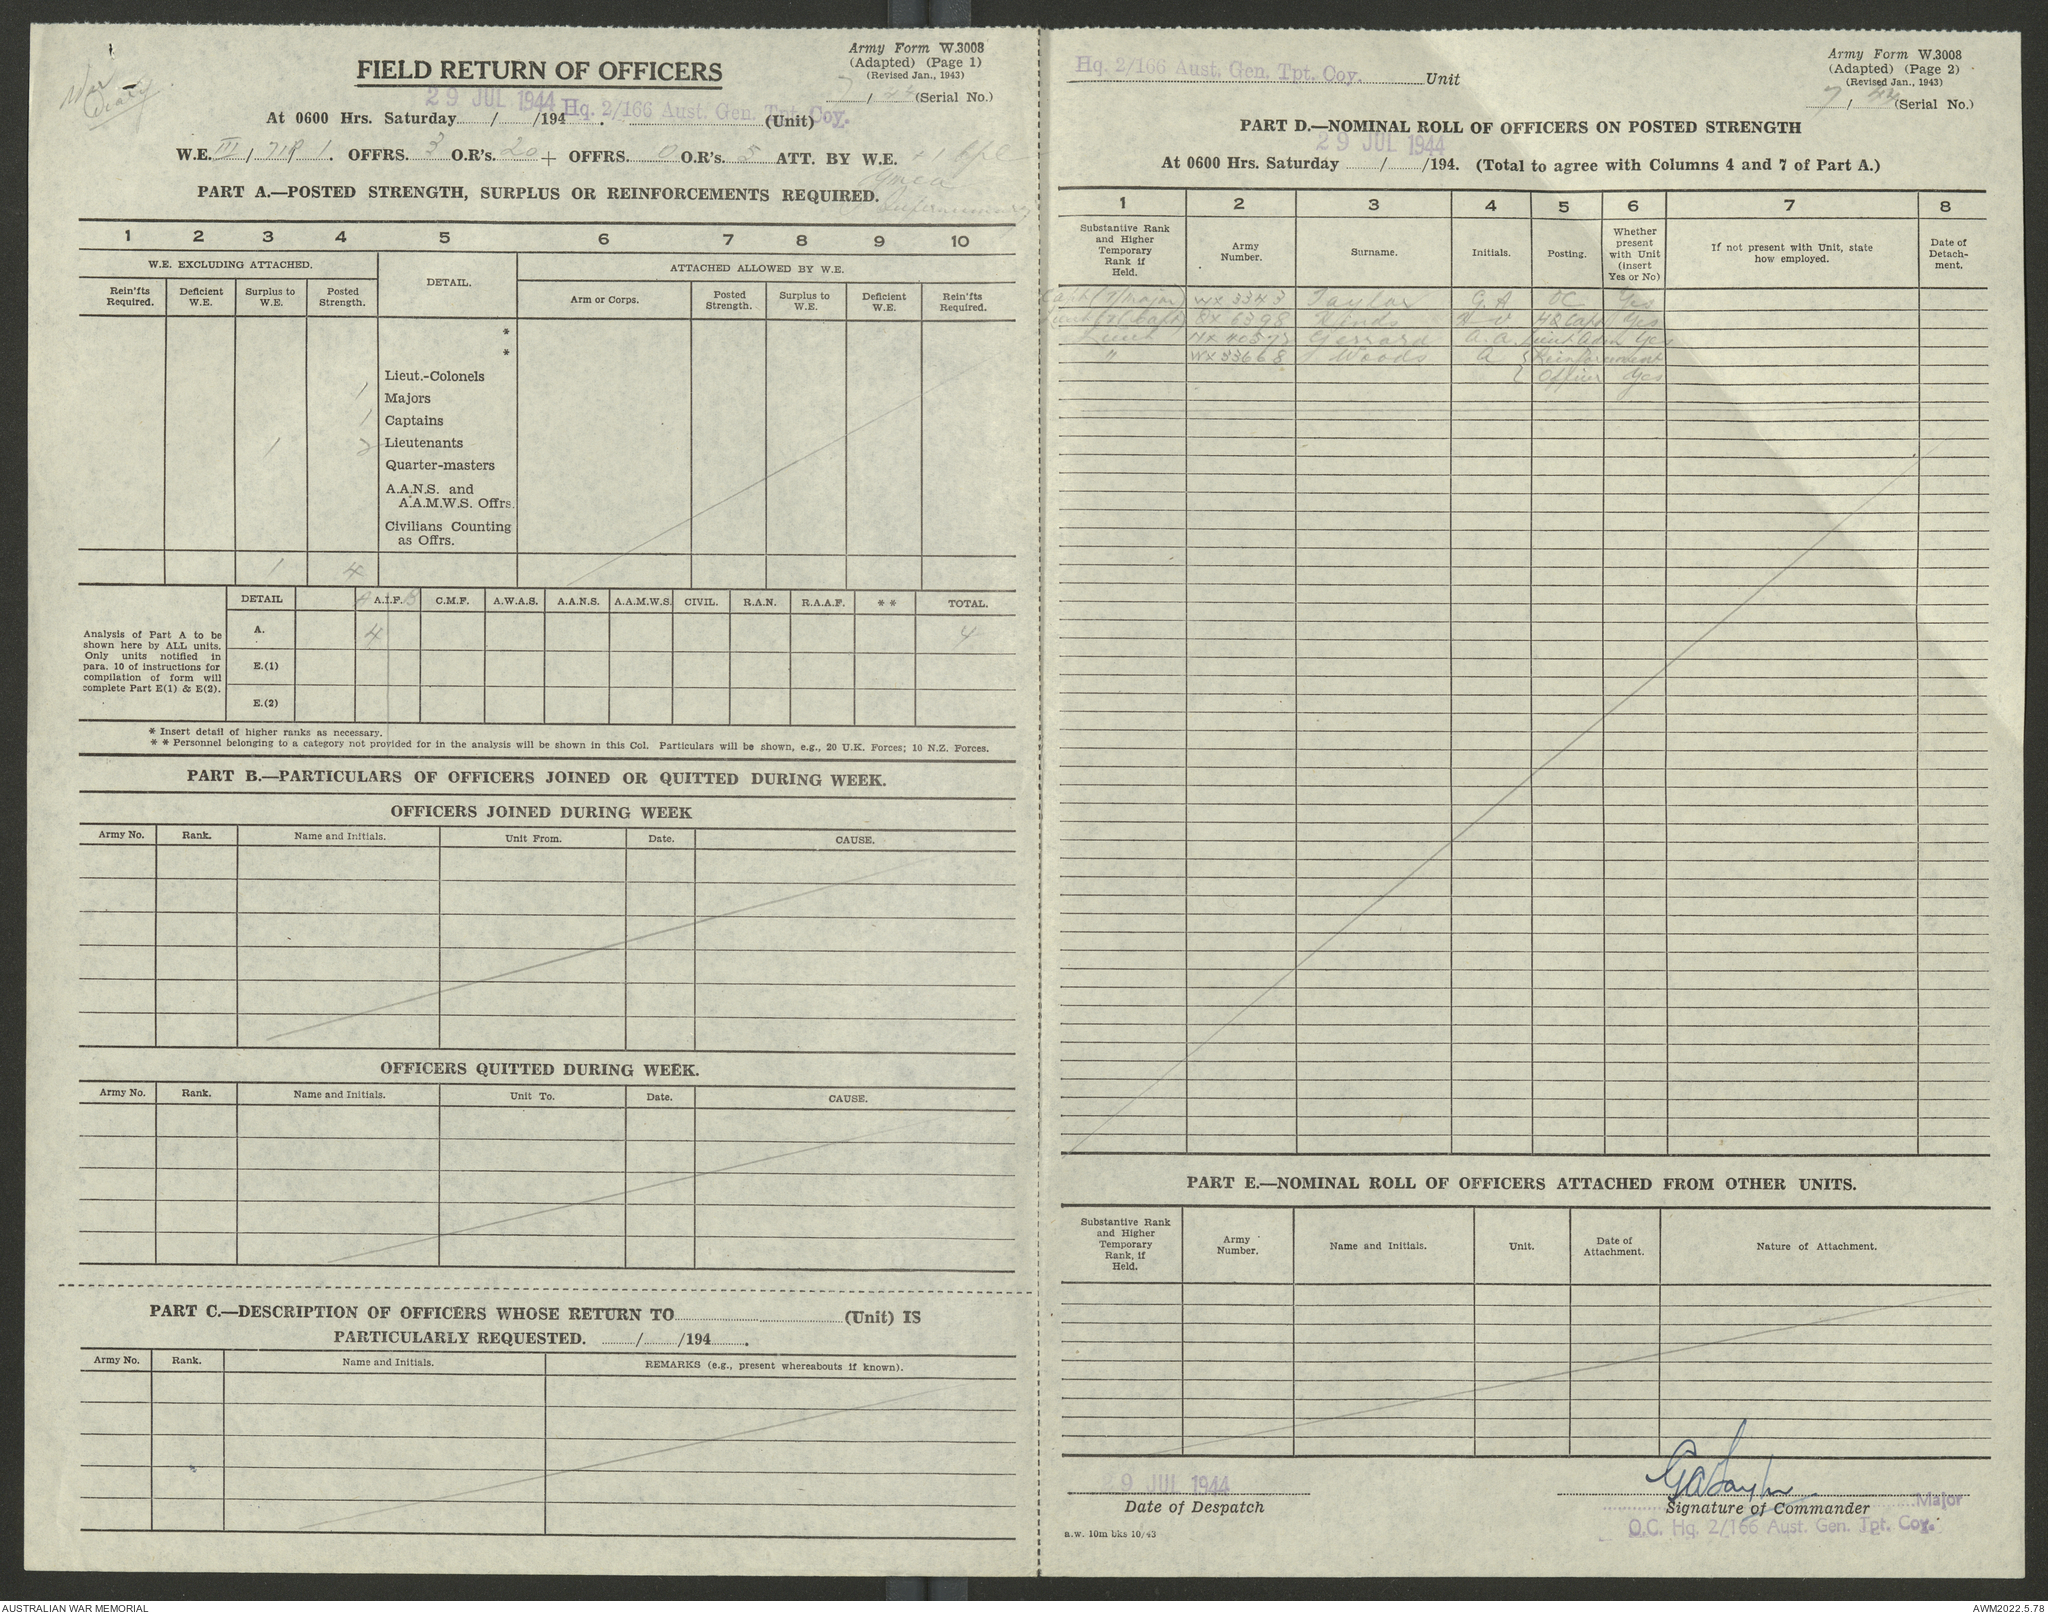 War
Diary
FIELD RETURN OF OFFICERS
Army Form W.3008
(Adapted) (Page 1)
(Revised Jan., 1943)
7 / 44 (Serial No.)
29 JUL 1944 Hq. 2/166 Aust. Gen. Tpt. Coy.
At 0600 Hrs. Saturday / /194 . (Unit)
W.E. III / 71P / 1. OFFRS. 3 O.R's. 20 + OFFRS. 0 O.R's. 5 ATT. BY W.E. + 1 Cpl
YMCA
Supernumerary
PART A.—POSTED STRENGTH, SURPLUS OR REINFORCEMENTS REQUIRED.
1 2 3 4 5 6 7 8 9 10
W.E. EXCLUDING ATTACHED. DETAIL. ATTACHED ALLOWED BY W.E.
Rein'fts Required. Deficient W.E. Surplus to W.E. Posted Strength. Arm or Corps. Posted Strength. Surplus to W.E. Deficient W.E. Rein'fts Required.
*
*
Lieut.-Colonels
1 Majors
1 Captains
1 2 Lieutenants
Quarter-masters
A.A.N.S. and
A.A.M.W.S. Offrs.
Civilians Counting
as Offrs.
1 4
DETAIL A A.I.F. B C.M.F. A.W.A.S. A.A.N.S. A.A.M.W.S. CIVIL. R.A.N. R.A.A.F. * * TOTAL.
Analysis of Part A to be
shown here by ALL units.
Only units notified in
para. 10 of instructions for
compilation of form will
complete Part E(1) & E(2).
A. 4 4
E.(1)
E.(2)
* Insert detail of higher ranks as necessary.
* * Personnel belonging to a category not provided for in the analysis will be shown in this Col. Particulars will be shown, e.g., 20 U.K. Forces; 10 N.Z. Forces.
PART B.—PARTICULARS OF OFFICERS JOINED OR QUITTED DURING WEEK.
OFFICERS JOINED DURING WEEK
Army No. Rank. Name and Initials. Unit From. Date. CAUSE.
OFFICERS QUITTED DURING WEEK.
Army No. Rank. Name and Initials. Unit To. Date. CAUSE.
PART C.—DESCRIPTION OF OFFICERS WHOSE RETURN TO (Unit) IS
PARTICULARLY REQUESTED. / /194 .
Army No. Rank. Name and Initials. REMARKS (e.g., present whereabouts if known).
Hq. 2/166 Aust. Gen. Tpt. Coy. Unit
Army Form W.3008
(Adapted) (Page 2)
(Revised Jan., 1943)
7 / 44 (Serial No.)
PART D.—NOMINAL ROLL OF OFFICERS ON POSTED STRENGTH
29 JUL 1944
At 0600 Hrs. Saturday / /194. (Total to agree with Columns 4 and 7 of Part A.)
1 2 3 4 5 6 7 8
Substantive Rank and Higher Temporary Rank if Held. Army Number. Surname. Initials. Posting. Whether present with Unit (insert Yes or No) If not present with Unit, state how employed. Date of Detachment.
Capt (T/Major) WX 3343 Taylor G A OC Yes
Lieut (T/Capt) 6398 Hinds HQ Capt Yes
Lieut NX 40573 Gerrard A. A. Lieut Adm Yes
" WX 33668 Woods A Reinforcement
Officer Yes
PART E.—NOMINAL ROLL OF OFFICERS ATTACHED FROM OTHER UNITS.
Substantive Rank and Higher Temporary Rank, if Held. Army Number. Name and Initials. Unit. Date of Attachment. Nature of Attachment.
29 JUL 1944
Date of Despatch
GATaylor
Signature of Commander Major
O.C. Hq. 2/166 Aust. Gen. Tpt. Coy.
a.w. 10m bks 10/43
AUSTRALIAN WAR MEMORIAL
AWM2022.5.78